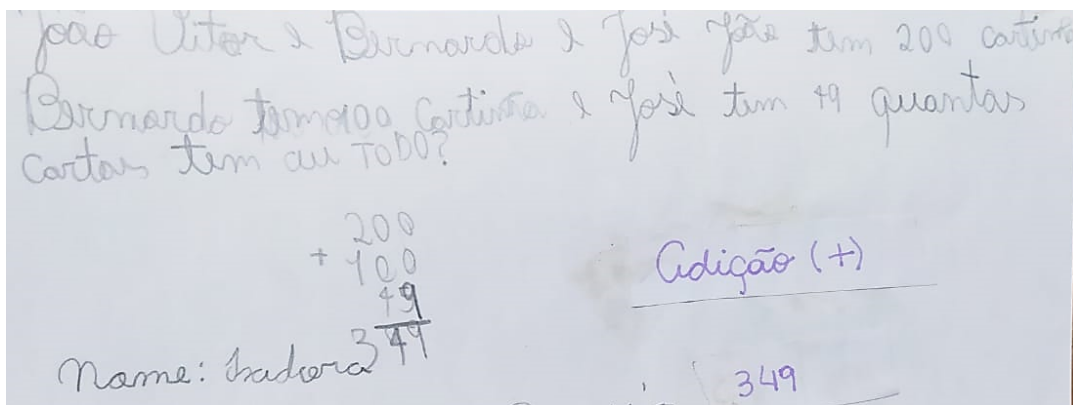 João Vitor e Bernardo e José João tem 200 cartinha
Bernardo tem 100 Cartinha e José tem 49 quantas
cartas tem au TODO?
200
+ 100
49
349
Adição (+)
Name: Isadora
349